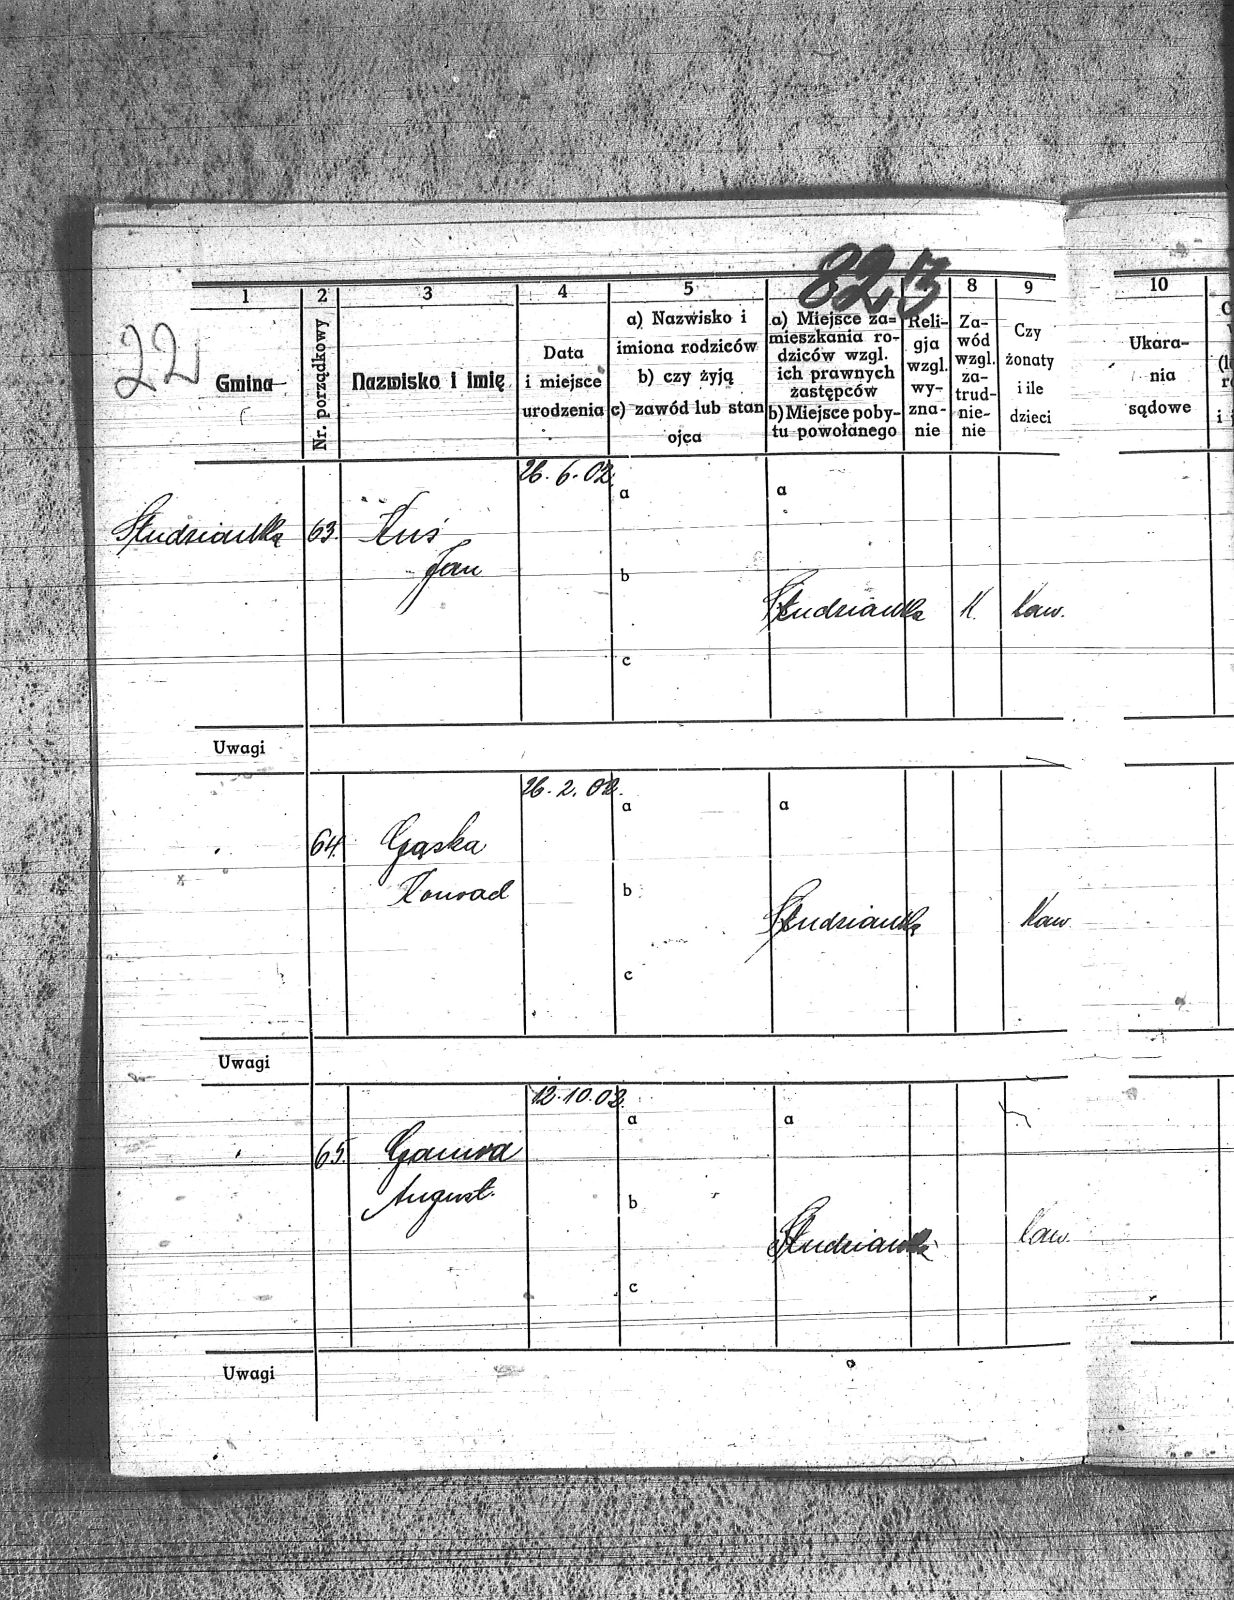 823
22
1 2 3 4 5 8 9 10
Gmina
Nr. porządkowy
Nazwisko i imię
Data
i miejsce
urodzenia
a) Nazwisko i
imiona rodziców
b) czy żyją
c) zawód lub stan
ojca
a) Miejsce za=
mieszkania ro-
dziców wzgl.
ich prawnych
zastępców
b) Miejsce poby-
tu powołanego
Reli-
gja
wzgl.
wy-
zna-
nie
Za-
wód
wzgl.
za-
trud-
nie-
nie
Czy
żonaty
i ile
dzieci
Ukara-
nia
sądowe
26.6.02.
a a
Studzianka 63. Kuś
Jan
b
Studzianka K. Kaw.
c
Uwagi
26.2.02.
a a
64. Gąska
Konrad
b
Studzianka Kaw.
c
Uwagi
12.10.02.
a a
65.
August.
b
Studzianka Kaw.
c
Uwagi